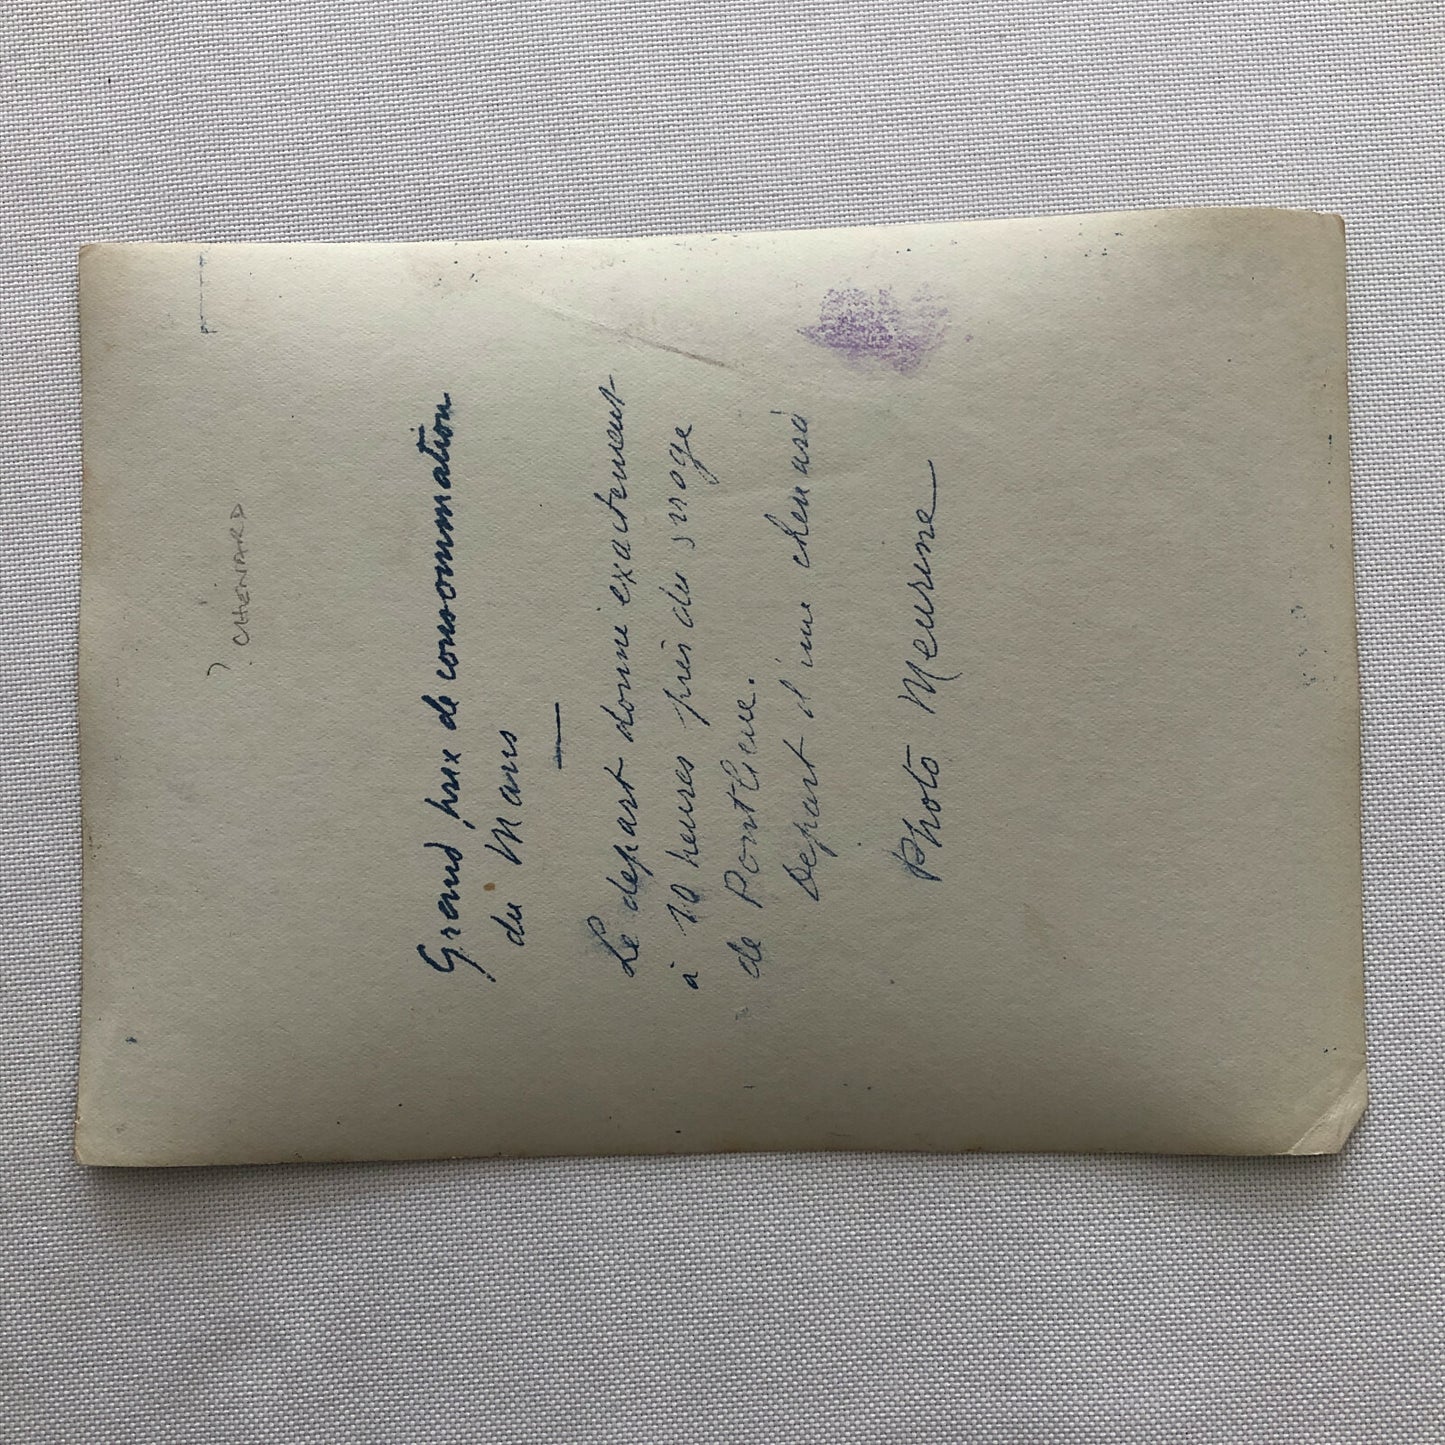 ? CHÉNARD
Grand prix de consommation
du Mans
Le depart donné exactement
à 10 heures près du
de Pontlieue.
Depart d'une chenard
Photo Meurisse